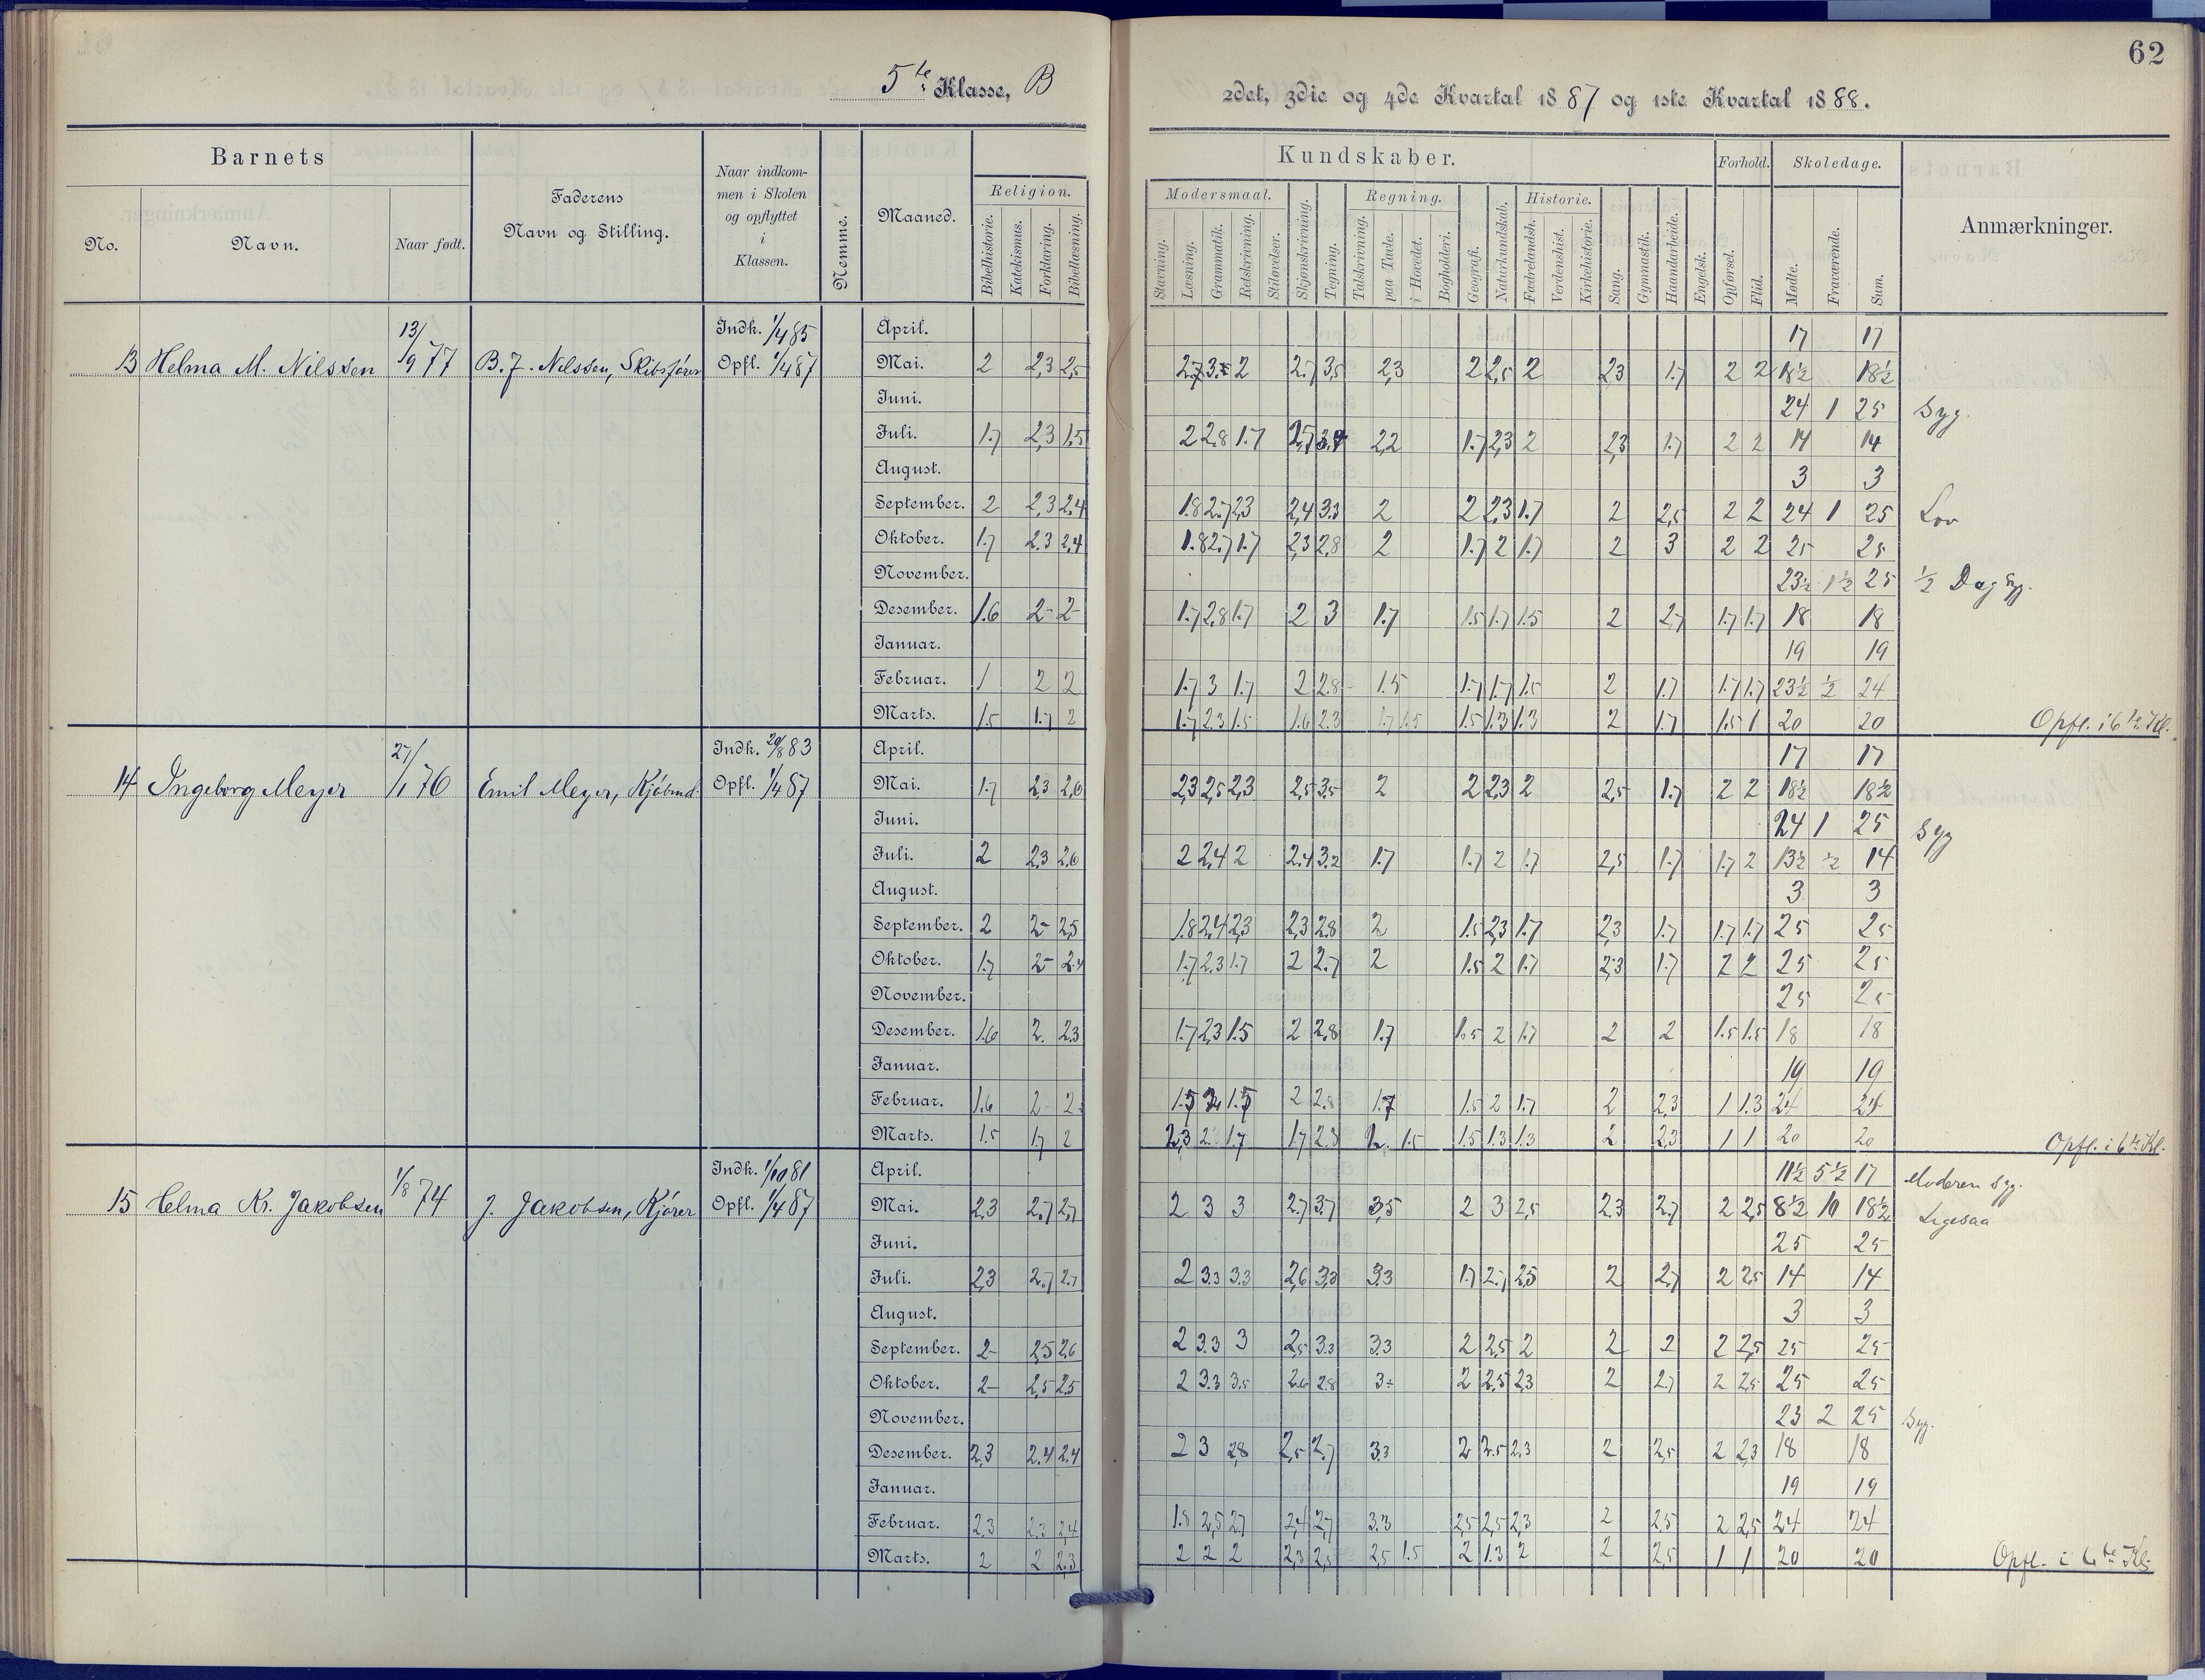 62
5te Klasse, B
2det, 3die og 4de Kvartal 1887 og 1ste Kvartal 1888.
Barnets
No.
Navn.
Naar født.
Faderens
Navn og Stilling.
Naar indkom-
men i Skolen
og opflyttet
i
Klassen.
Nemme.
Maaned.
Religion.
Bibelhistorie.
Katekismus.
Forklaring.
Bibellæsning.
Kundskaber.
Modersmaal.
Stavning.
Læsning.
Grammatik.
Retskrivning.
Stiløvelser.
Skjønskrivning.
Tegning.
Regning.
Talskrivning.
paa Tavle.
i Hovedet.
Bogholderi.
Geografi.
Naturkundskab.
Historie.
Fædrelandsh.
Verdenshist.
Kirkehistorie.
Sang.
Gymnastik.
Haandarbeide.
Engelsk.
Forhold.
Opførsel.
Flid.
Skoledage.
Mødte.
Fraværende.
Sum.
Anmærkninger.
13 Helma M. Nilssen 13/9 77 B. J. Nilssen, Skibsfører Indk. 1/4 85 Opfl. 1/4 87
April. 17 17
Mai. 2 2,3 2,5 2.7 2 2.7 3,5 2,3 2 2,5 2 2,3 1.7 2 2 18½ 18½
Juni. 24 1 25 Syg.
Juli. 1.7 2,3 1,5 2 2.8 1.7 2,2 1.7 2,3 2 2,3 1.7 2 2 14 14
August. 3 3
September. 2 2,3 2,4 1.8 2.7 2,3 2,4 3.3 2 2 2,3 1.7 2 2,5 2 2 24 1 25 Lov
Oktober. 1.7 2.3 2,4 1.8 2.7 1.7 2,3 2.8 2 1.7 2 1.7 2 3 2 2 25 25
November. 23½ 1½ 25 ½ Dag Syg.
Desember. 1.6 2- 2- 1.7 2.8 1.7 2 3 1.7 1.5 1.7 1.5 2 2,7 1.7 1.7 18 18
Januar. 19 19
Februar. 1 2 2 1.7 3 1.7 2 2.8 1.5 1.7 1.7 1.5 2 1.7 1.7 1.7 23½ ½ 24
Marts. 1.5 1.7 2 1.7 2.3 1.5 1.6 2.3 1.7 1.5 1.5 1.3 1.3 2 1.7 1.5 1 20 20 Opfl. i 6te Kl.
14 Ingeborg Meyer 27/1 76 Emil Meyer, Kjøbmd. Indk. 20/8 83 Opfl. 1/4 87
April. 17 17
Mai. 1.7 2,3 2,6 2,3 2,5 2,3 2,5 3,5 2 2 2,3 2 2,5 1.7 2 2 18½ 18½
Juni. 24 1 25 Syg
Juli. 2 2,3 2,6 2 2,4 2 2.4 3.2 1.7 1.7 2 1.7 2,5 1.7 1.7 2 13½ ½ 14
August. 3 3
September. 2 2- 2,5 1.8 2,4 2,3 2,3 2.8 2 1.5 2,3 1.7 2,3 1.7 1.7 1.7 25 25
Oktober. 1.7 2- 2.4 1.7 2.3 1.7 2 2.7 2 1.5 2 1.7 2,3 1.7 2 2 25 25
November. 25 25
Desember. 1.6 2. 2.3 1.7 2,3 1.5 2 2,8 1.7 1.5 2 1.7 2 2 1.5 1.5 18 18
Januar. 19 19
Februar. 1.6 2- 2 1.5 1.5 2 2.8 1.7 1.5 2 1.7 2 2,3 1 1.3 24 24
Marts. 1.5 1.7 2 2,3 2 1.7 1.7 2.3 2. 1.5 1.5 1.3 1.3 2 2,3 1 1 20 20 Opfl. i 6te Kl.
15 Helma Kr. Jakobsen 1/8 74 J. Jakobsen, Kjører Indk. 1/10 81 Opfl. 1/4 87
April. 11½ 5½ 17 Moderen syg.
Mai. 2,3 2.7 2,7 2 3 3 2.7 3.7 3,5 2 3 2,5 2.3 2.7 2 2,5 8½ 10 18½ Ligesaa
Juni. 25 25
Juli. 2,3 2.7 2.7 2 3.3 3.3 2,6 3,3 3.3 1.7 2.7 2,5 2 2.7 2 2,5 14 14
August. 3 3
September. 2- 2,5 2,6 2 3.3 3 2,5 3.3 3.3 2 2,5 2 2 2 2 2,5 25 25
Oktober. 2- 2,5 2,5 2 3.3 3.5 2.6 2.8 3- 2 2,5 2,3 2 2.7 2 2,5 25 25
November. 23 2 25 Syg.
Desember. 2,3 2.4 2.4 2 3 2,8 2,5 2.7 3.3 2 2.5 2,3 2 2,5 2 2,3 18 18
Januar. 19 19
Februar. 2,3 2,3 2,4 1.8 2,5 2,7 2,4 2,7 3.3 2,5 2,5 2,3 2 2,5 2 2,5 24 24
Marts. 2 2 2.3 2 2 2 2,3 2,5 2,5 1.5 2 1.3 2 2 2,5 1 1 20 20 Opfl. i 6te Kl.